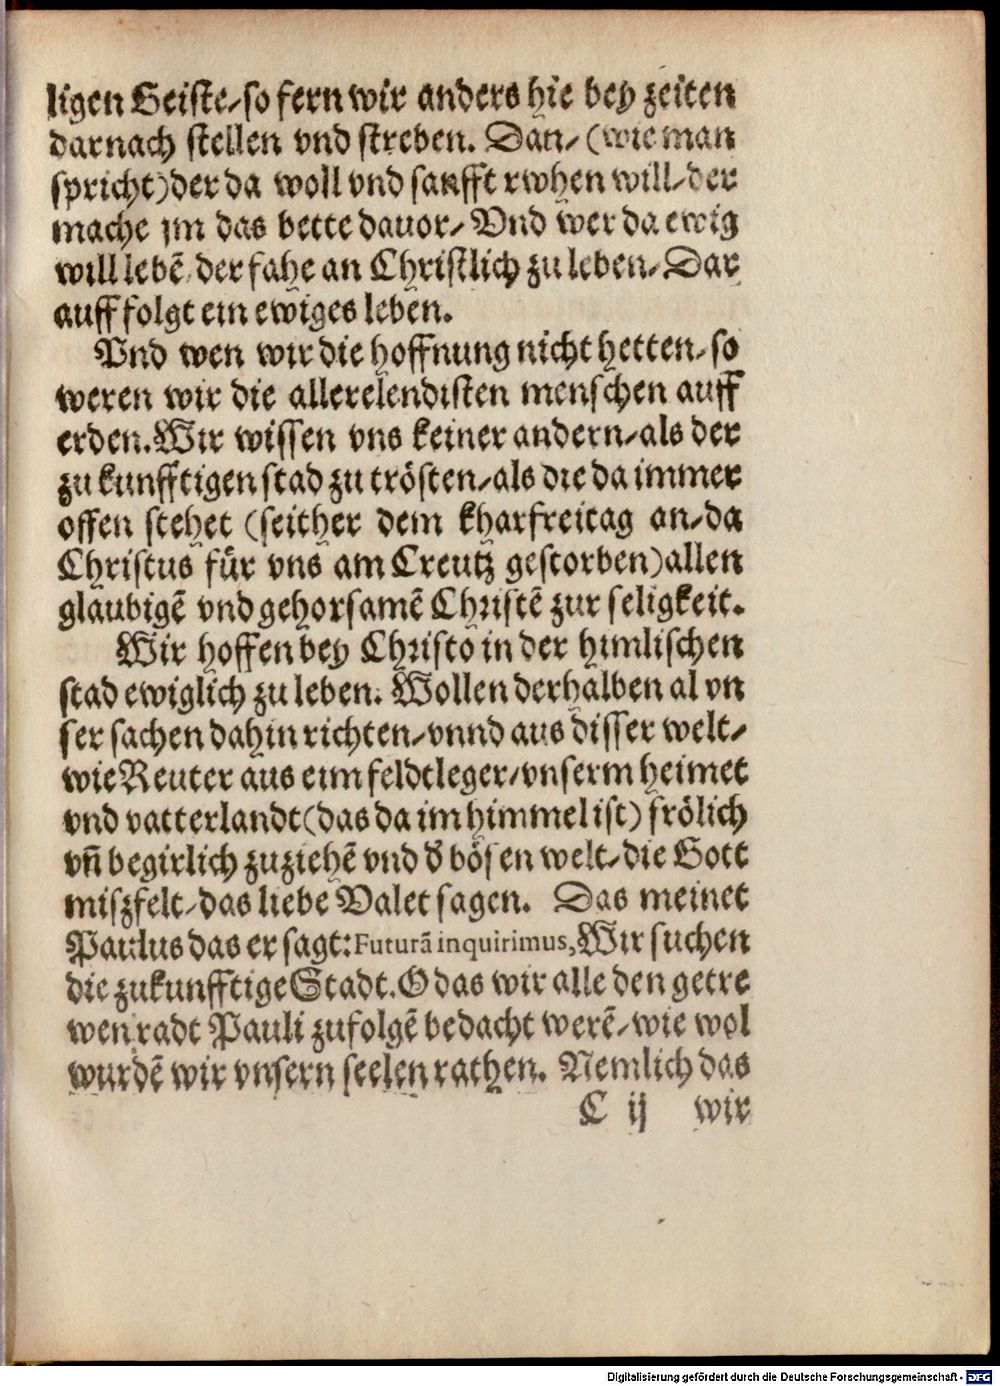 ligen Geiste/so fern wir anders hie bey zeiten
darnach stellen vnd streben. Dan/(wie man
spricht)der da woll vnd sanfft rwhen will/der
mache jm das bette dauor/Vnd wer da ewig
will lebē/der fahe an Christlich zu leben/Dar
auff folgt ein ewiges leben.
Vnd wen wir die hoffnung nicht hetten/so
weren wir die allerelendisten menschen auff
erden.Wir wissen vns keiner andern/als der
zukunfftigen stad zu trösten/als die da immer
offen stehet (seither dem kharfreitag an/da
Christus für vns am Creutz gestorben)allen
glaubigē vnd gehorsamē Christē zur seligkeit.
Wir hoffen bey Christo in der himlischen
stad ewiglich zu leben. Wollen derhalben al vn
ser sachen dahin richten/vnnd aus disser welt/
wie Reuter aus eim feldtleger/vnserm heimet
vnd vatterlandt(das da im himmel ist) frölich
vn̄ begirlich zuziehē vnd d̕ bösen welt/die Gott
miszfelt/das liebe Valet sagen. Das meinet
Paulus das er sagt:Futurā inquirimus,Wir suchen
die zukunfftige Stadt.O das wir alle den getre
wen radt Pauli zufolgē bedacht werē/wie wol
wurdē wir vnsern seelen rathen. Nemlich das
C ij wir
Digitalisierung gefördert durch die Deutsche Forschungsgemeinschaft - DFG